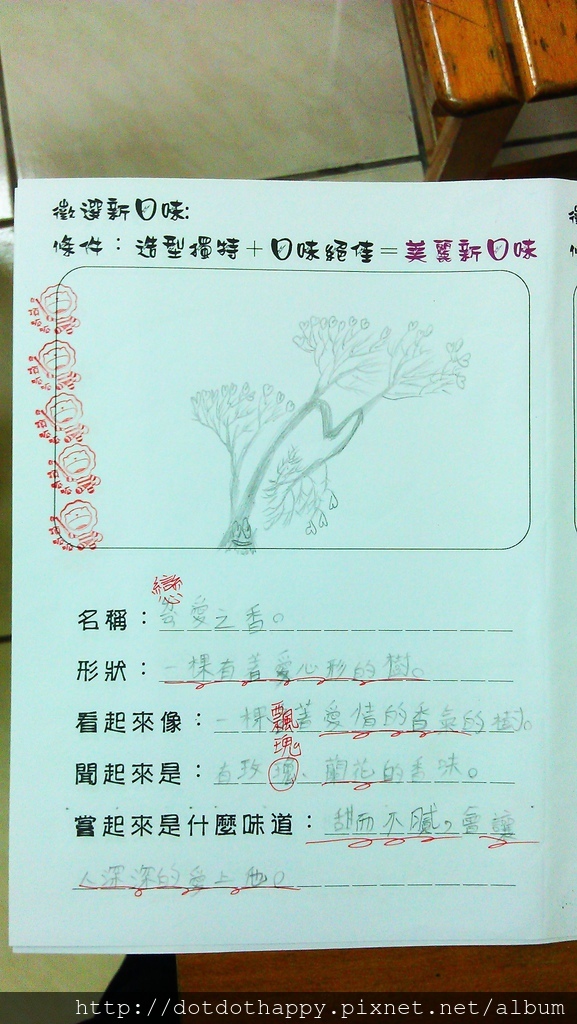 徵選新口味:
條件：造型獨特＋口味絕佳＝美麗新口味
戀
名稱：愛之香。
形狀：一棵有著愛心形的樹。
飄
看起來像：一棵著愛情的香氣的樹。
瑰
聞起來是：有玫、蘭花的香味。
嘗起來是什麼味道：甜而不膩，會讓
人深深的愛上他。
http://dotdothappy.pixnet.net/album